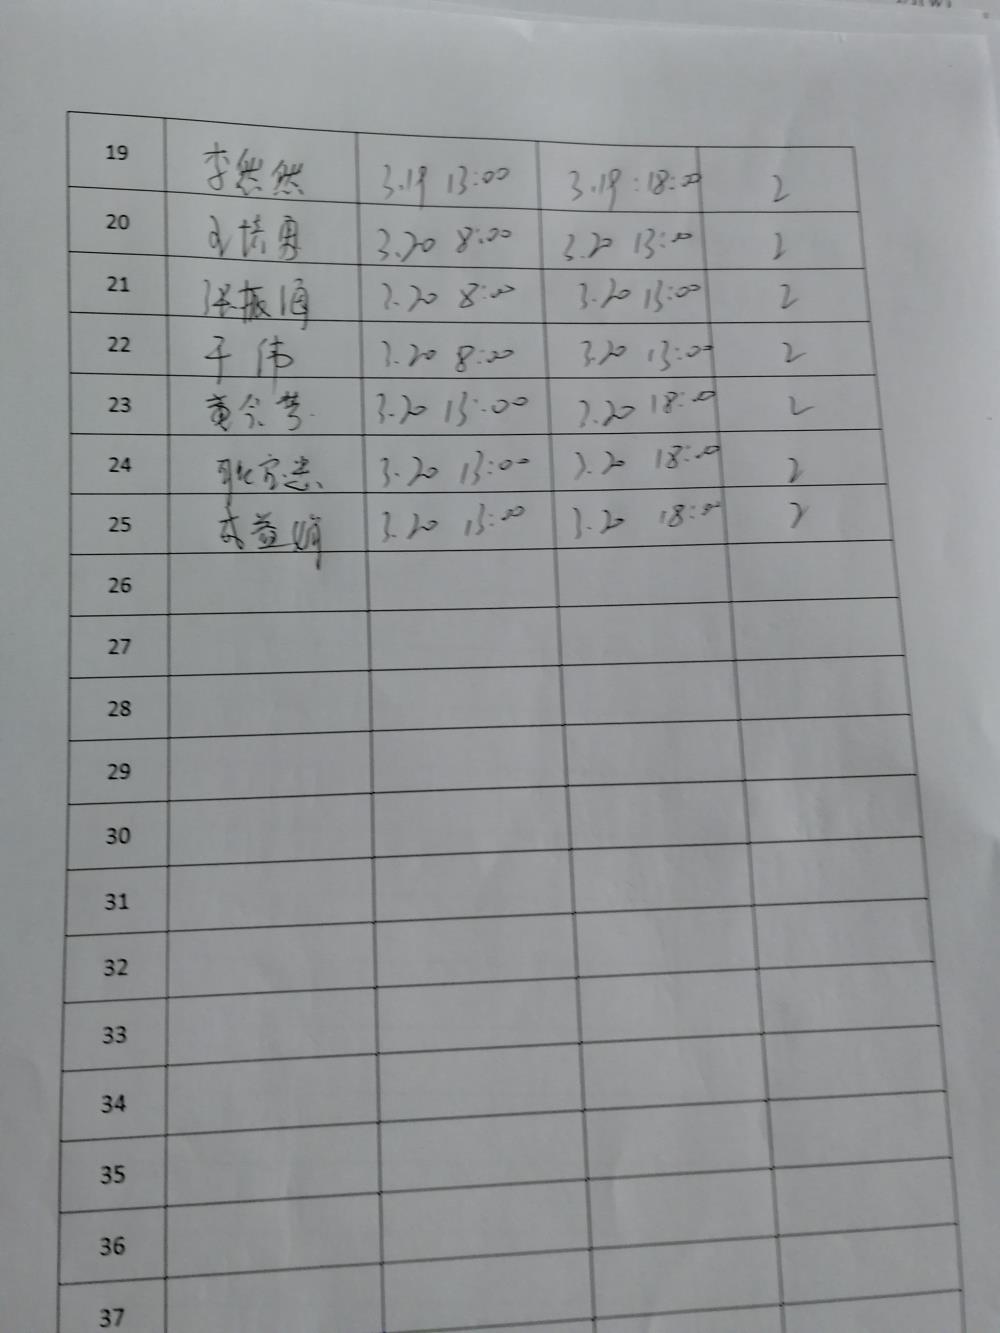 19 李然然 3.19 13:00 3.19:18:00 2
20 培勇 3.20 8:00 3.20 13:00 2
21 张振海 3.20 8:00 3.20 13:00 2
22 于伟 3.20 8:00 3.20 13:00 2
23 黄 3.20 13:00 3.20 18:00 2
24 耿 3.20 13:00 3.20 18:00 2
25 益娟 3.20 13:00 3.20 18:00 2
26
27
28
29
30
31
32
33
34
35
36
37